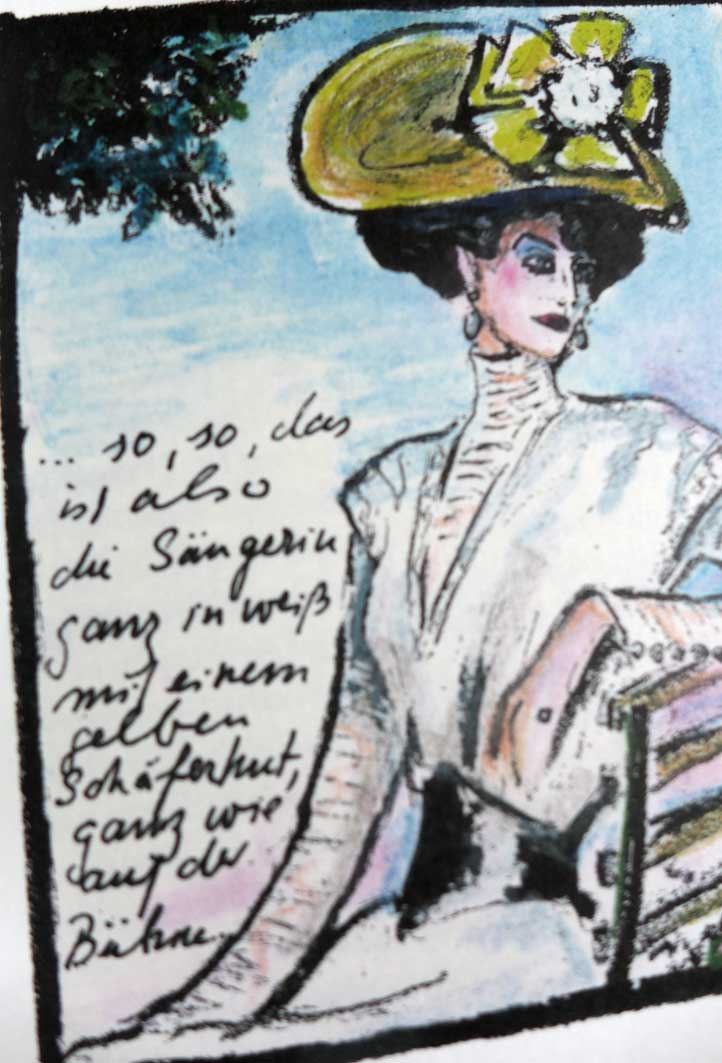 ... so, so, das
ist also
die Sängerin
ganz in weiß
mit einem
gelben
Schäferhut,
ganz wie
auf der
Bühne..